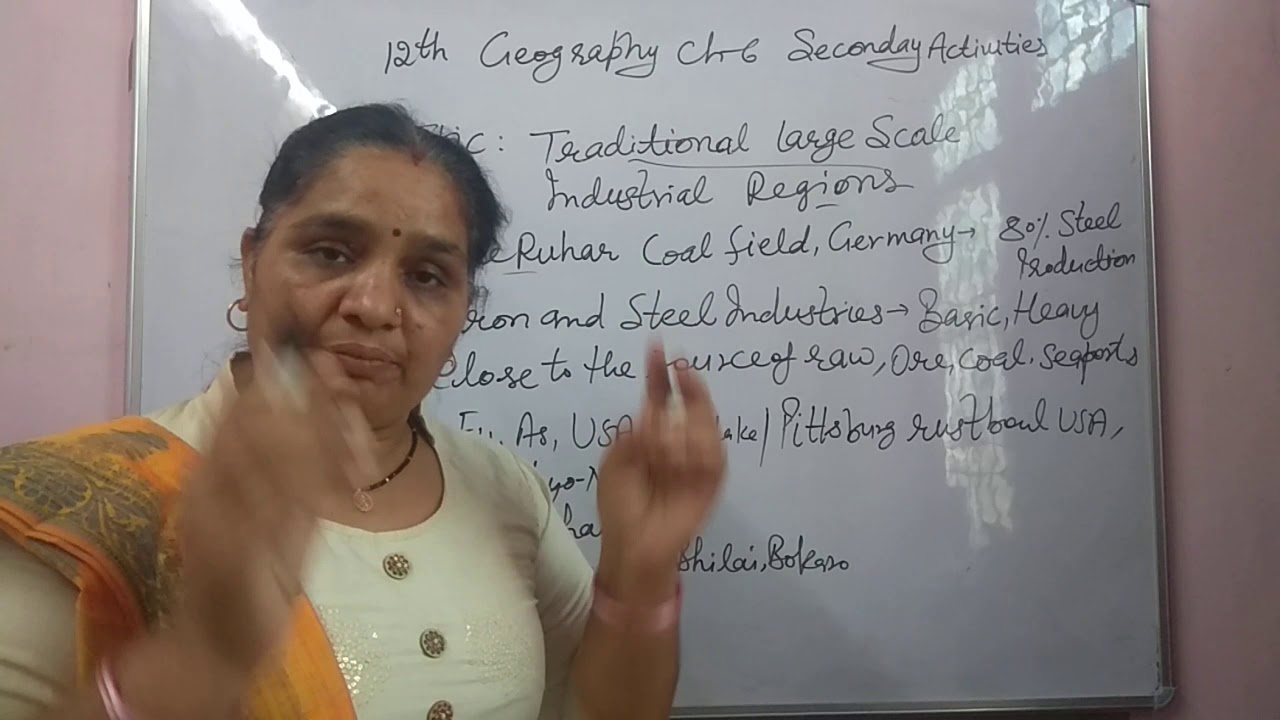 12th Geography Ch-6 Seconday Activities
: Traditional large Scale
Industrial Regions
Ruhar Coal field, Germany → 80% Steel
Production
and Steel Industries → Basic, Heavy
Close to the source of raw, Ore, Coal. Seaports
As, USA Pittsburg rustboul USA,
Bhilai, Bokaro